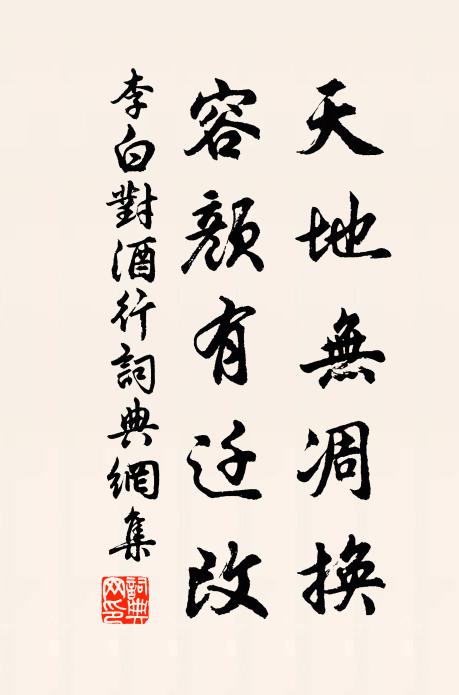 天地無凋換
容顏有迁改
李白對酒行詞典網集
詞典網印